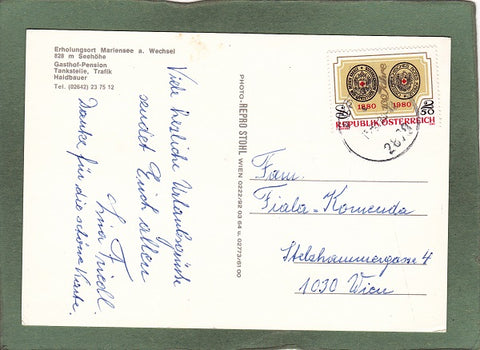 Erholungsort Mariensee a. Wechsel
828 m Seehöhe
Gasthof-Pension
Tankstelle, Trafik
Haidbauer
Tel. (02642) 23 75 12
Viele herzliche Urlaubsgrüße
sendet Euch allen
Friedl.
Danke für die schöne Karte.
PHOTO-REPRO STOHL WIEN 0222/92 03 64 u. 02773/61 00
1880 1980
REPUBLIK ÖSTERREICH
Fam.
Fiala-Komenda
Stelzhammergasse 4
1030 Wien